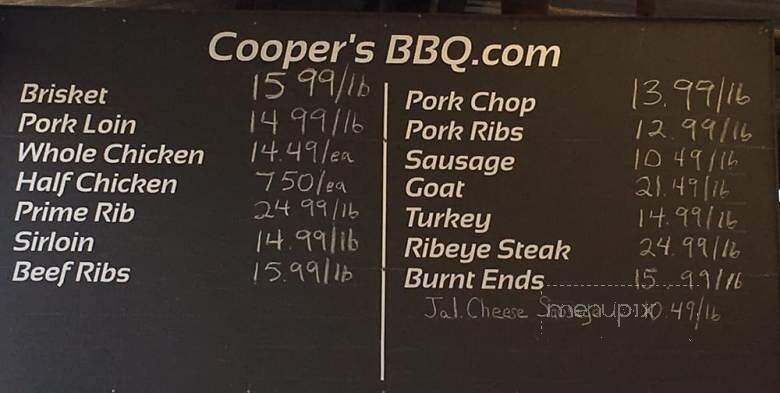 Cooper's BBQ.com
Brisket 15 99/lb
Pork Loin 14 99/lb
Whole Chicken 14.49/ea
Half Chicken 7 50/ea
Prime Rib 24 99/lb
Sirloin 14.99/lb
Beef Ribs 15.99/lb
Pork Chop 13.99/lb
Pork Ribs 12.99/lb
Sausage 10 49/lb
Goat 21.49/lb
Turkey 14.99/lb
Ribeye Steak 24.99/lb
Burnt Ends 15.99/lb
Jal. Cheese 10.49/lb
menupix